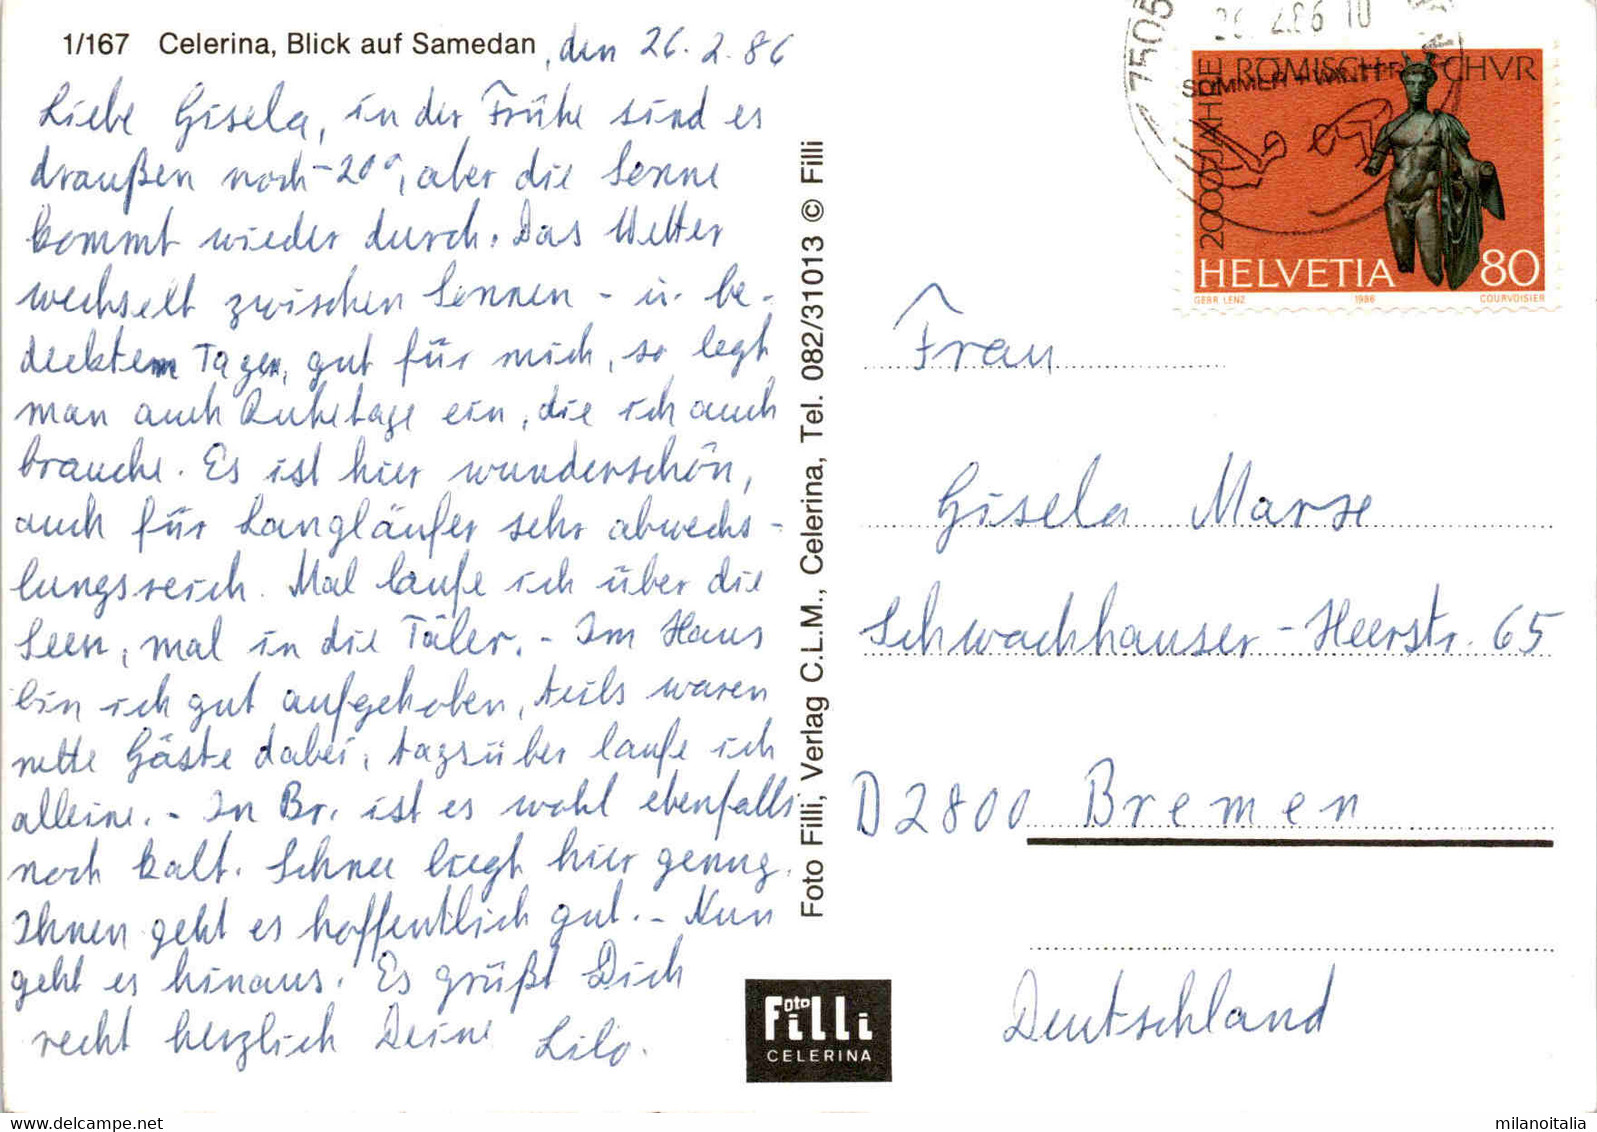 1/167 Celerina, Blick auf Samedan, den 26.2.86
Liebe Gisela, in der Frühe sind es
draußen noch -20°, aber die Sonne
kommt wieder durch. Das Wetter
wechselt zwischen Sonnen- u. be-
deckten Tagen, gut für mich, so legt
man auch Ruhetage ein, die ich auch
brauche. Es ist hier wunderschön,
auch für Langläufer sehr abwechs-
lungsreich. Mal laufe ich über die
Seen, mal in die Täler. - Im Haus
bin ich gut aufgehoben, teils waren
nette Gäste dabei, tagsüber laufe ich
alleine. - In Br. ist es wohl ebenfalls
noch kalt. Schnee liegt hier genug.
Ihnen geht es hoffentlich gut. - Nun
geht es hinaus. Es grüßt Dich
recht herzlich Deine Lilo.
Foto Filli, Verlag C.L.M., Celerina, Tel. 082/31013 © Filli
Foto Filli
CELERINA
7505
26.2.86 10
SOMMER + WINTER
2000 JAHRE RÖMISCHES CHVR
HELVETIA 80
GEBR LENZ 1986 COURVOISIER
Frau
Gisela Marse
Schwachhauser-Heerstr. 65
D 2800 Bremen
Deutschland
milanoitalia